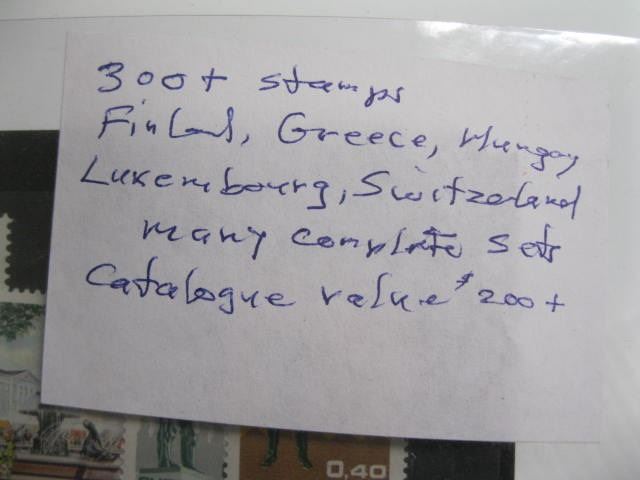 300+ stamps
Finland, Greece, Hungary
Luxembourg, Switzerland
many complete sets
Catalogue value $200+
0,40